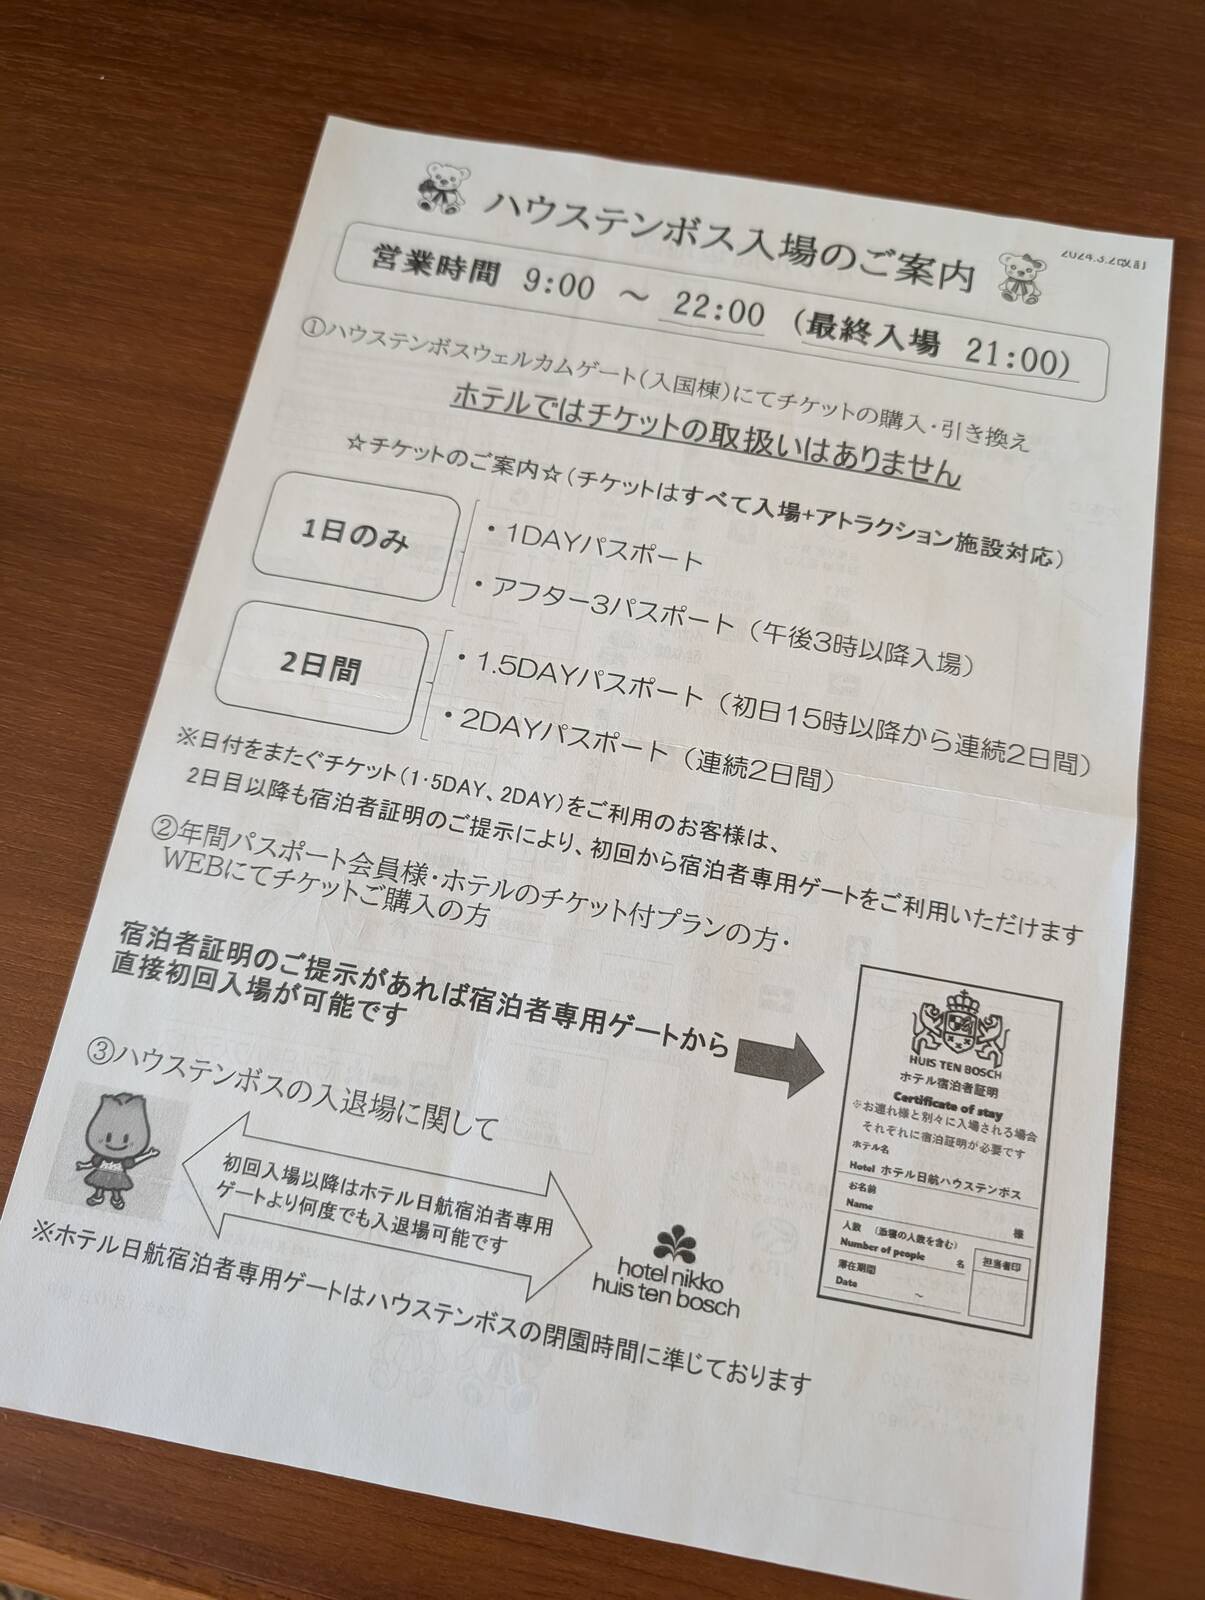 ハウステンボス入場のご案内
2024.3.2改訂
営業時間 9:00 ～ 22:00 (最終入場 21:00)
①ハウステンボスウェルカムゲート(入国棟)にてチケットの購入・引き換え
ホテルではチケットの取扱いはありません
☆チケットのご案内☆(チケットはすべて入場+アトラクション施設対応)
1日のみ
・1DAYパスポート
・アフター3パスポート (午後3時以降入場)
2日間
・1.5DAYパスポート (初日15時以降から連続2日間)
・2DAYパスポート (連続2日間)
※日付をまたぐチケット(1・5DAY、2DAY)をご利用のお客様は、
2日目以降も宿泊者証明のご提示により、初回から宿泊者専用ゲートをご利用いただけます
②年間パスポート会員様・ホテルのチケット付プランの方・
WEBにてチケットご購入の方
宿泊者証明のご提示があれば宿泊者専用ゲートから
直接初回入場が可能です
HUIS TEN BOSCH
ホテル宿泊者証明
Certificate of stay
※お連れ様と別々に入場される場合
それぞれに宿泊証明が必要です
ホテル名
Hotel ホテル日航ハウステンボス
お名前
Name 様
人数 (添寝の人数を含む)
Number of people 名
滞在期間
Date ～
担当者印
③ハウステンボスの入退場に関して
初回入場以降はホテル日航宿泊者専用
ゲートより何度でも入退場可能です
hotel nikko
huis ten bosch
※ホテル日航宿泊者専用ゲートはハウステンボスの閉園時間に準じております